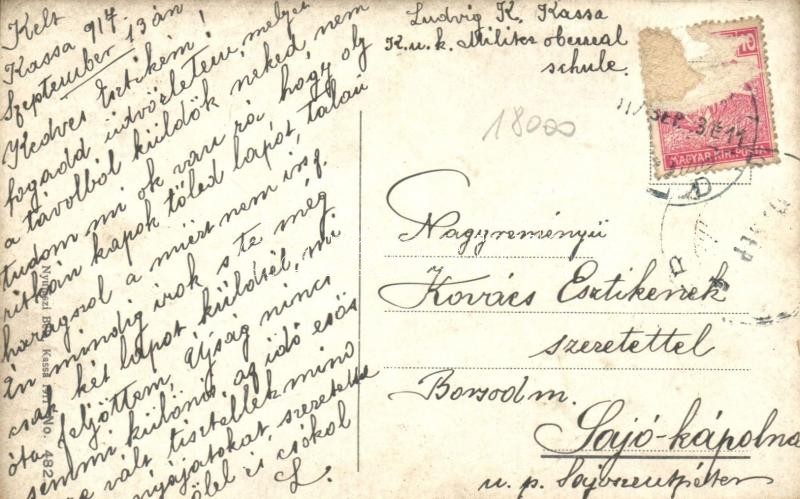 Kelt
Kassa 917
Szeptember 13 án
Kedves Esztikém!
fogadd üdvözletem, melyet
a távolból küldök neked, nem
tudom mi ok van rá, hogy oly
ritkán kapok tőled lapot, talán
haragszol a miért nem írsz.
Én mindig írok s te még
csak két lapot küldtél, mi
óta feljöttem, Újság nincs
semmi különös, az idő esős
vált tisztellek mind
nyájatokat szeretette
ölel és csókol
L.
Nyulászi Béla, Kassa 1911 No. 482
Ludvig K. Kassa
K.u.k. Militer oberreal
schule.
18000
10
MAGYAR KIR. POSTA
SEP.
Nagyreményű
Kovács Esztikének
szeretettel
Borsod m.
Sajó-kápolna
u. p. Sajószentpéter